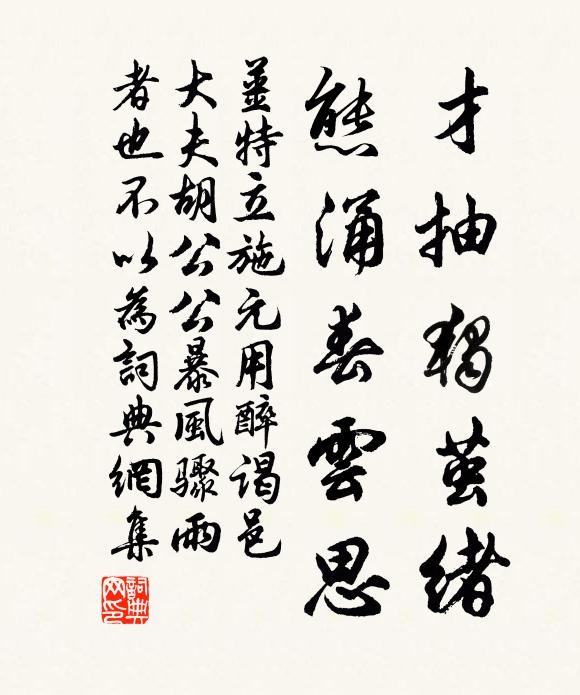 才抽獨茧緒
態涌春雲思
薑特立施元用醉謁邑
大夫胡公公暴風驟雨
者也不以為詞典網集
詞典
网印